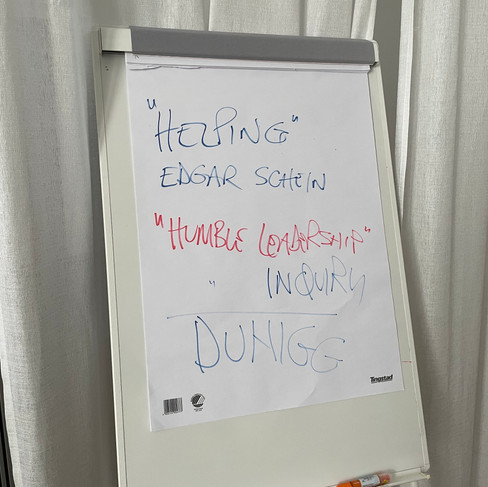 "HELPING"
EDGAR SCHEIN
"HUMBLE LEADERSHIP"
" INQUIRY
DUHIGG
Tingstad